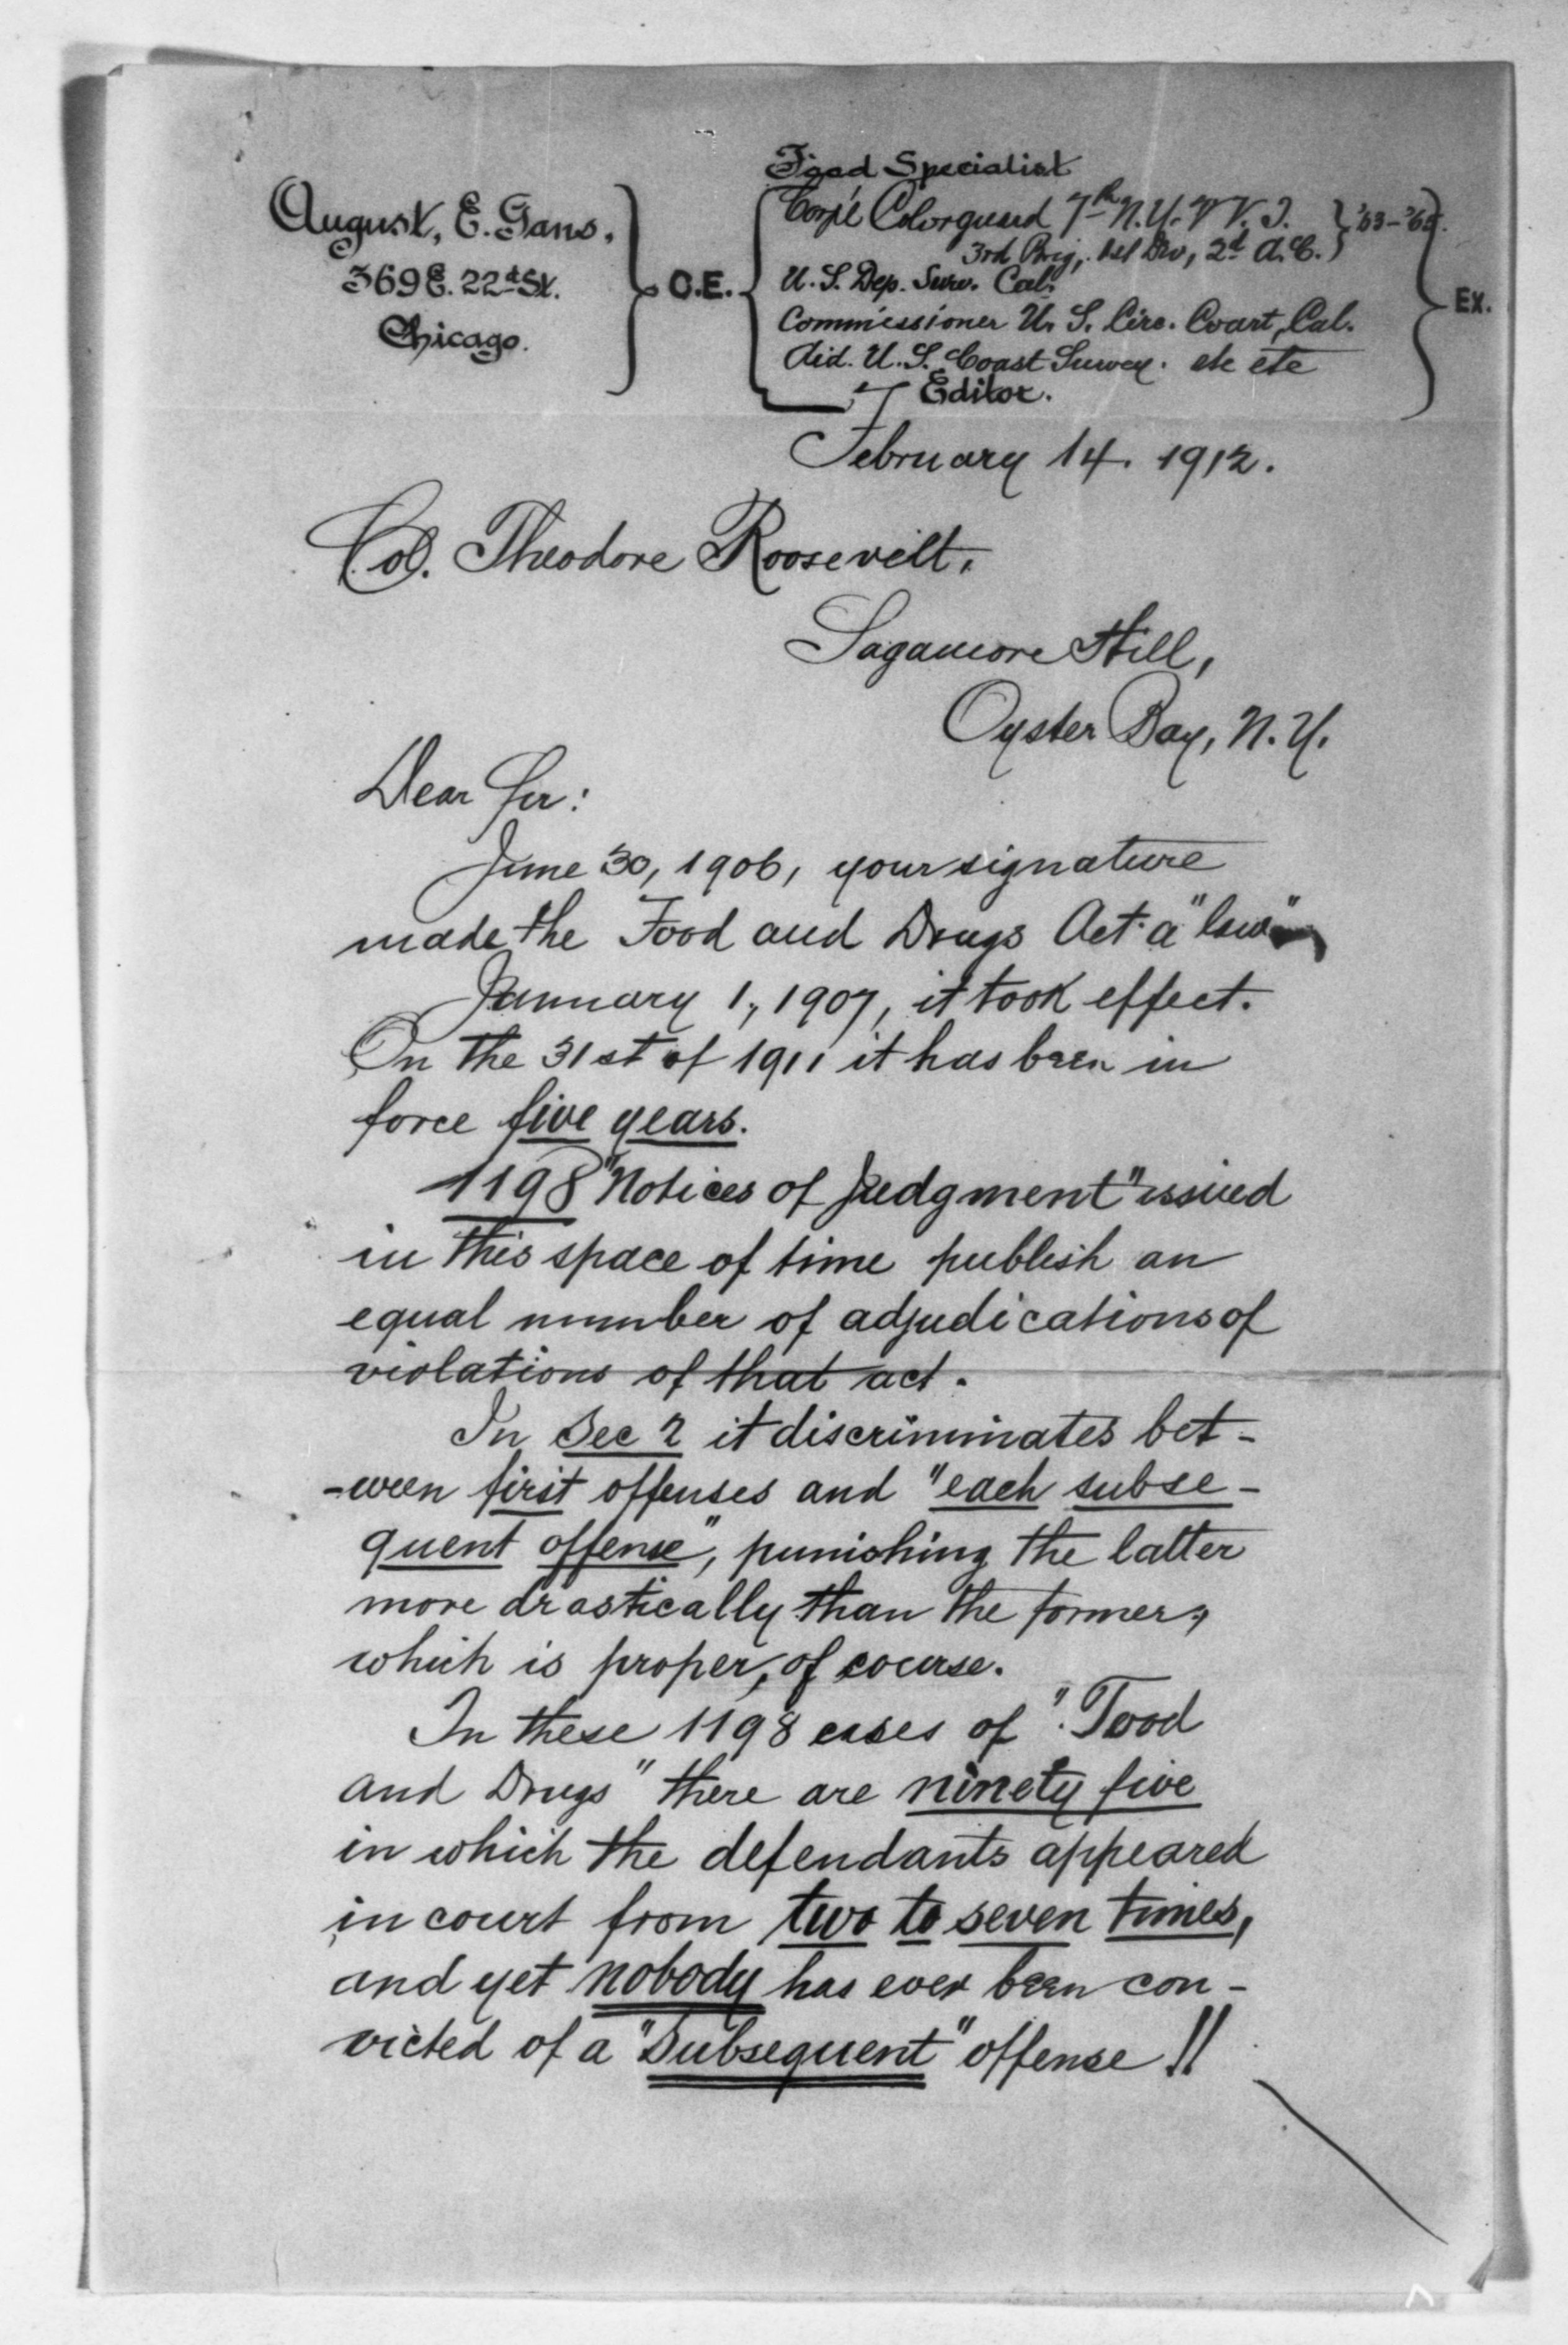 Food Specialist
August, E. Gans.
369 E. 22d St.
Chicago.
C.E.
Corp'l Colorguard 7th N.Y. V. I. '63-'65.
3rd Brig, 1st Div, 2d A.C.
U. S. Dep. Surv. Cal.
Commissioner U. S. Circ. Court, Cal.
Aid. U. S. Coast Survey. etc etc
Editor.
Ex.
February 14. 1912.
Col. Theodore Roosevelt,
Sagamore Hill,
Oyster Bay, N. Y.
Dear Sir:
June 30, 1906, your signature
made the Food and Drugs Act a "law"
January 1, 1907, it took effect.
On the 31st of 1911 it has been in
force five years.
1198 "Notices of Judgment" issued
in this space of time publish an
equal number of adjudications of
violations of that act.
In Sec 2 it discriminates bet-
-ween first offenses and "each subse-
quent offense", punishing the latter
more drastically than the former,
which is proper, of course.
In these 1198 cases of "Food
and Drugs" there are ninety five
in which the defendants appeared
in court from two to seven times,
and yet nobody has ever been con-
victed of a "Subsequent" offense!!